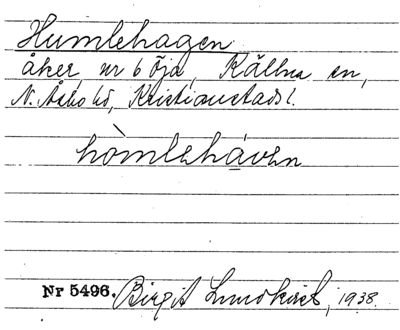 Humlehagen
åker, nr 6 Öja, Källna sn,
N. Åsbo hd, Kristianstads l.
hòmlehávεn
Nr 5496. Birgit Lundkvist, 1938.